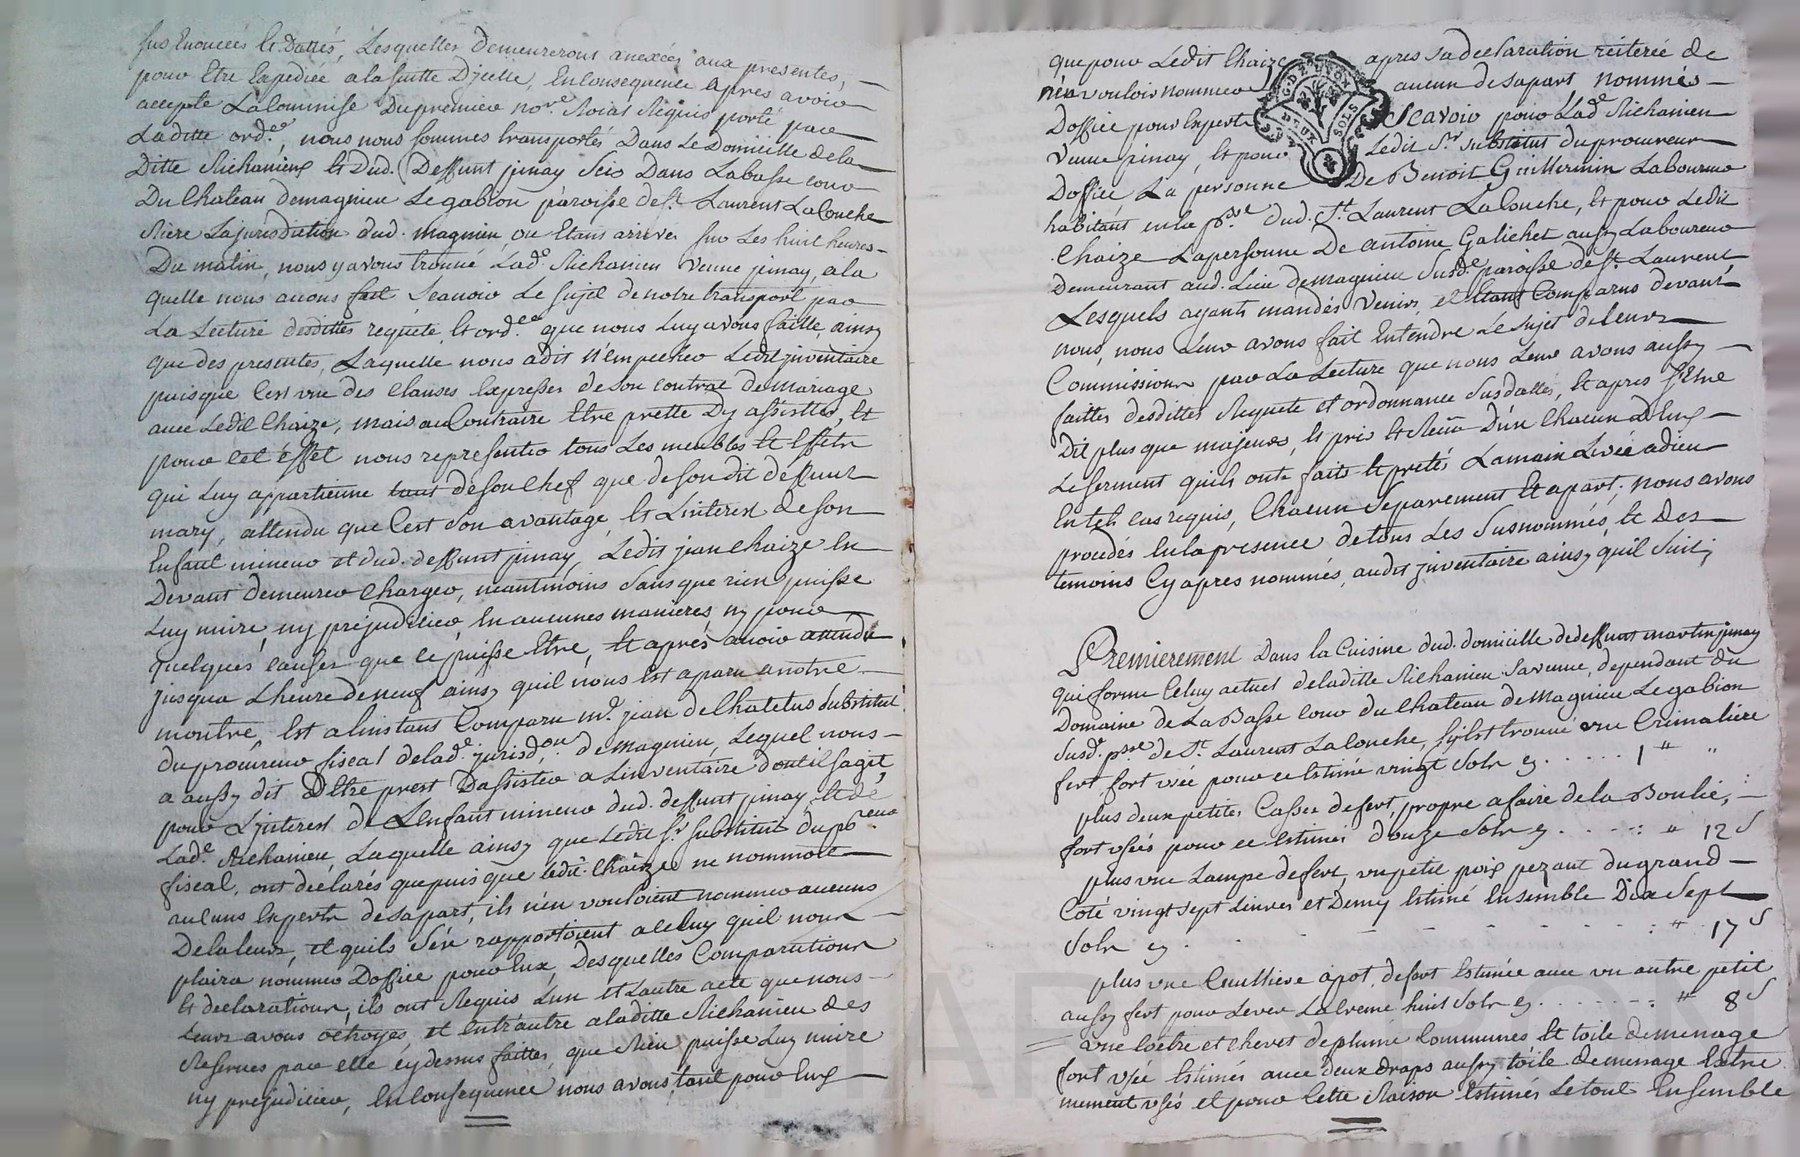 sus Enoncées et Dattés, Lesquelles demeureront anexées aux presentes,
pour Etre Expediée a la suitte D'jcelle, En Consequence apres avoir
accepté La Commise Du premier no.re Roial Requis porté par
La ditte ord.ce, nous nous sommes transportés Dans Le Domicille de la
Ditte Richanieu et Dud. Deffunt pinay Scis Dans La basse cour
Du Chateau de magnieu Le gabion paroisse de S.t Laurent La Conche
Riere La jurisdiction dud. magnieu, ou Etans arrivés sur Les huit heures
Du matin, nous y avons trouvé Lad.e Richanieu veuve pinay, a la
quelle nous avons fait Scavoir Le sujet de notre transport par
La Lecture desdittes requete et ord.ce que nous Luy avons faitte, ainsy
que des presentes, Laquelle nous a dit n'Empecher Ledit jnventaire
puisque C'est une des Clauses Expresses de son contrat de mariage
avec Ledit Chaize, mais au Contraire Etre prette D'y assister, Et
pour Cet éffet nous representer tous Les meubles Et Effets
qui Luy appartienne tant de son Chef que de son dit deffunt
mary, attendu que C'est son avantage et L'interest de son
Enfant mineur et dud. deffunt pinay, Ledit jean Chaize En
Devant demeurer Charger, neantmoins Sans que rien puisse
Luy nuire, ny prejudicier, En aucunes manieres, ny pour
quelques causes que ce puisse Etre, Et aprés avoir attendu
jusqua L'heure de neuf ainsy quil nous Est aparu a notre
montre, Est a l'instant Comparu m.e jean de Chatelus Substitut
du procureur fiscal de lad.e jurisd.on de Magnieu, Lequel nous
a aussy dit D'Etre prest D'assister a L'inventaire dont il s'agit,
pour L'jnterest de L'Enfant mineur dud. deffunt pinay, et de
Lad.e Richanieu, Laquelle ainsy que Ledit S.r Substitut du p.reur
fiscal, ont declarés que puis que Ledit Chaize ne nommoit
aucuns Experts de sa part, ils n'en vouloient nommer aucuns
De la leurs, et quils s'en rapportoient a celuy quil nous
plaira nommer D'office pour Eux, Desquelles Comparutions
et declarations, ils ont Requis L'un et L'autre acte que nous
Leurs avons octroyes, et Entr'autre a laditte Richanieu des
Reserves par elle cydessus faittes, que Rien puisse Luy nuire
ny prejudicier, En Consequence nous avons, tant pour Eux
que pour Ledit Chaize apres sa declaration reiterée de
n'en vouloir nommer aucun de sa part nommés
D'office pour Experts Scavoir pour Lad.e Richanieu
veuve pinay, et pour Ledit S.r substitut du procureur
D'office La personne De Benoit Guillermin Laboureur
habitant en la p.sse dud. S.t Laurent La Conche, et pour Ledit
Chaize La personne De antoine Galichet aussy Laboureur
Demeurant aud. Lieu de magnieu Susd.e paroisse de S.t Laurent
Lesquels ayants mandés venirs, et Etant Comparus devant
nous, nous Leur avons fait Entendre Le sujet de leurs
Commissions par La Lecture que nous Leur avons aussy
faittes desdittes Requete et ordonnance Susdattés, Et apres s'Etre
Dit plus que majeurs, et pris et Reçu D'un Chacun d'Eux
Le serment quils ont faits et pretés La main Levée a dieu
En tels Cas requis, Chacun Separement et apart; nous avons
procedés En la presence de tous Les Susnommés, et Des
temoins Cy apres nommés, audit jnventaire ainsy qu'il suit;
Premierement Dans la Cuisine dud. domicille dedeffunt martin pinay
qui forme Celuy actuel de laditte Richanieu sa veuve, dependant du
Domaine de La Basse cour du Chateau de Magnieu Le gabion
Susd. p.sse de S.t Laurent La Conche, s'y Est trouvé une Crimaliere
fert, fort usée pour ce Estimé vingt Sols cy . . . . . 1 " "
plus deux petites Casses de fert, propre a faire de la Boulie,
fort usées pour ce Estimés douze Sols cy . . . . : " 12 s
plus une Lampe de fert, un petit poix pezant du grand
Coté vingt sept Livres et Demy Estimé Ensemble Dix Sept
Sols cy . . . . . . . . . : " 17 s
plus une Cuilliere a pot, de fert Estimée avec un autre petit
aussy fert pour Lever La Creme huit Sols cy . . . . . : " 8 s
une Coëtre et Chevet de plume Communes Et toile de menage
fort usée Estimés avec deux draps aussy toile de menage Extre
mement usés et pour Cette Raison Estimés Le tout Ensemble